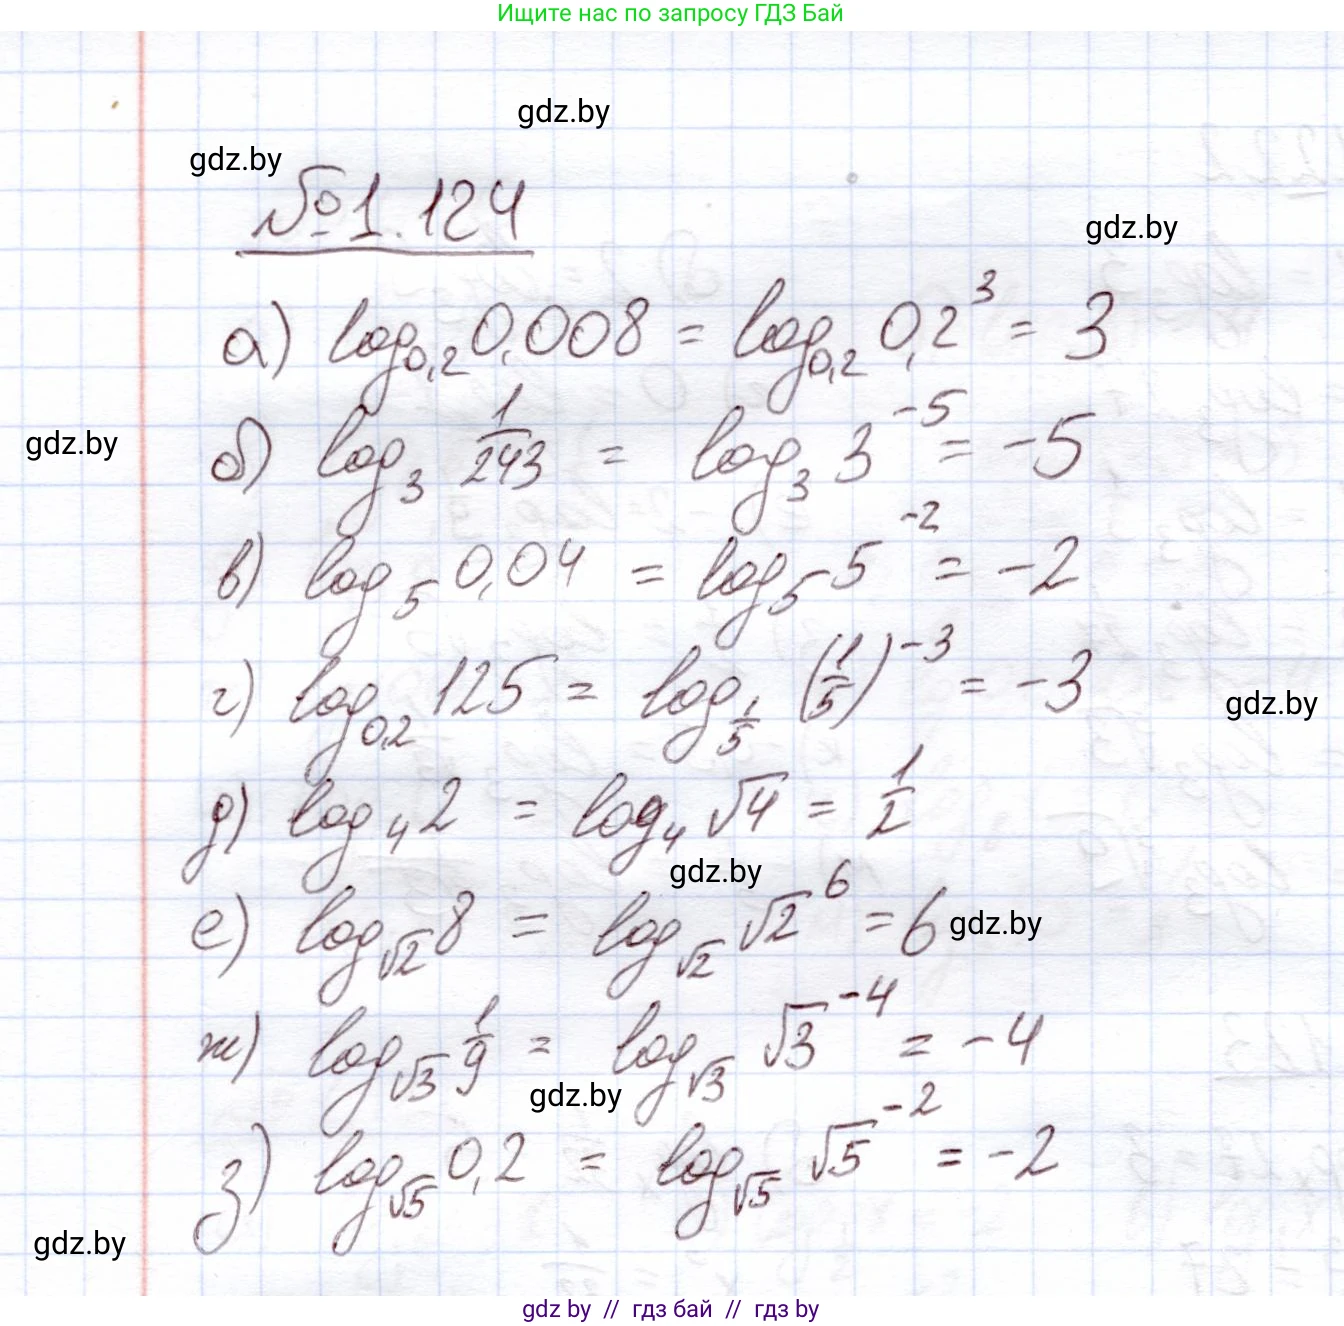 Ищите нас по запросу ГДЗ Бай
gdz.by
gdz.by
№1.124
gdz.by
а) log₀,₂ 0,008 = log₀,₂ 0,2³ = 3
gdz.by
б) log₃ 1/243 = log₃ 3⁻⁵ = -5
в) log₅ 0,04 = log₅ 5⁻² = -2
г) log₀,₂ 125 = log_{1/5} (1/5)⁻³ = -3
gdz.by
д) log₄ 2 = log₄ √4 = 1/2
gdz.by
е) log_{√2} 8 = log_{√2} √2⁶ = 6
gdz.by
ж) log_{√3} 1/9 = log_{√3} √3⁻⁴ = -4
gdz.by
з) log_{√5} 0,2 = log_{√5} √5⁻² = -2
gdz.by
gdz by // гдз бай // гдз by